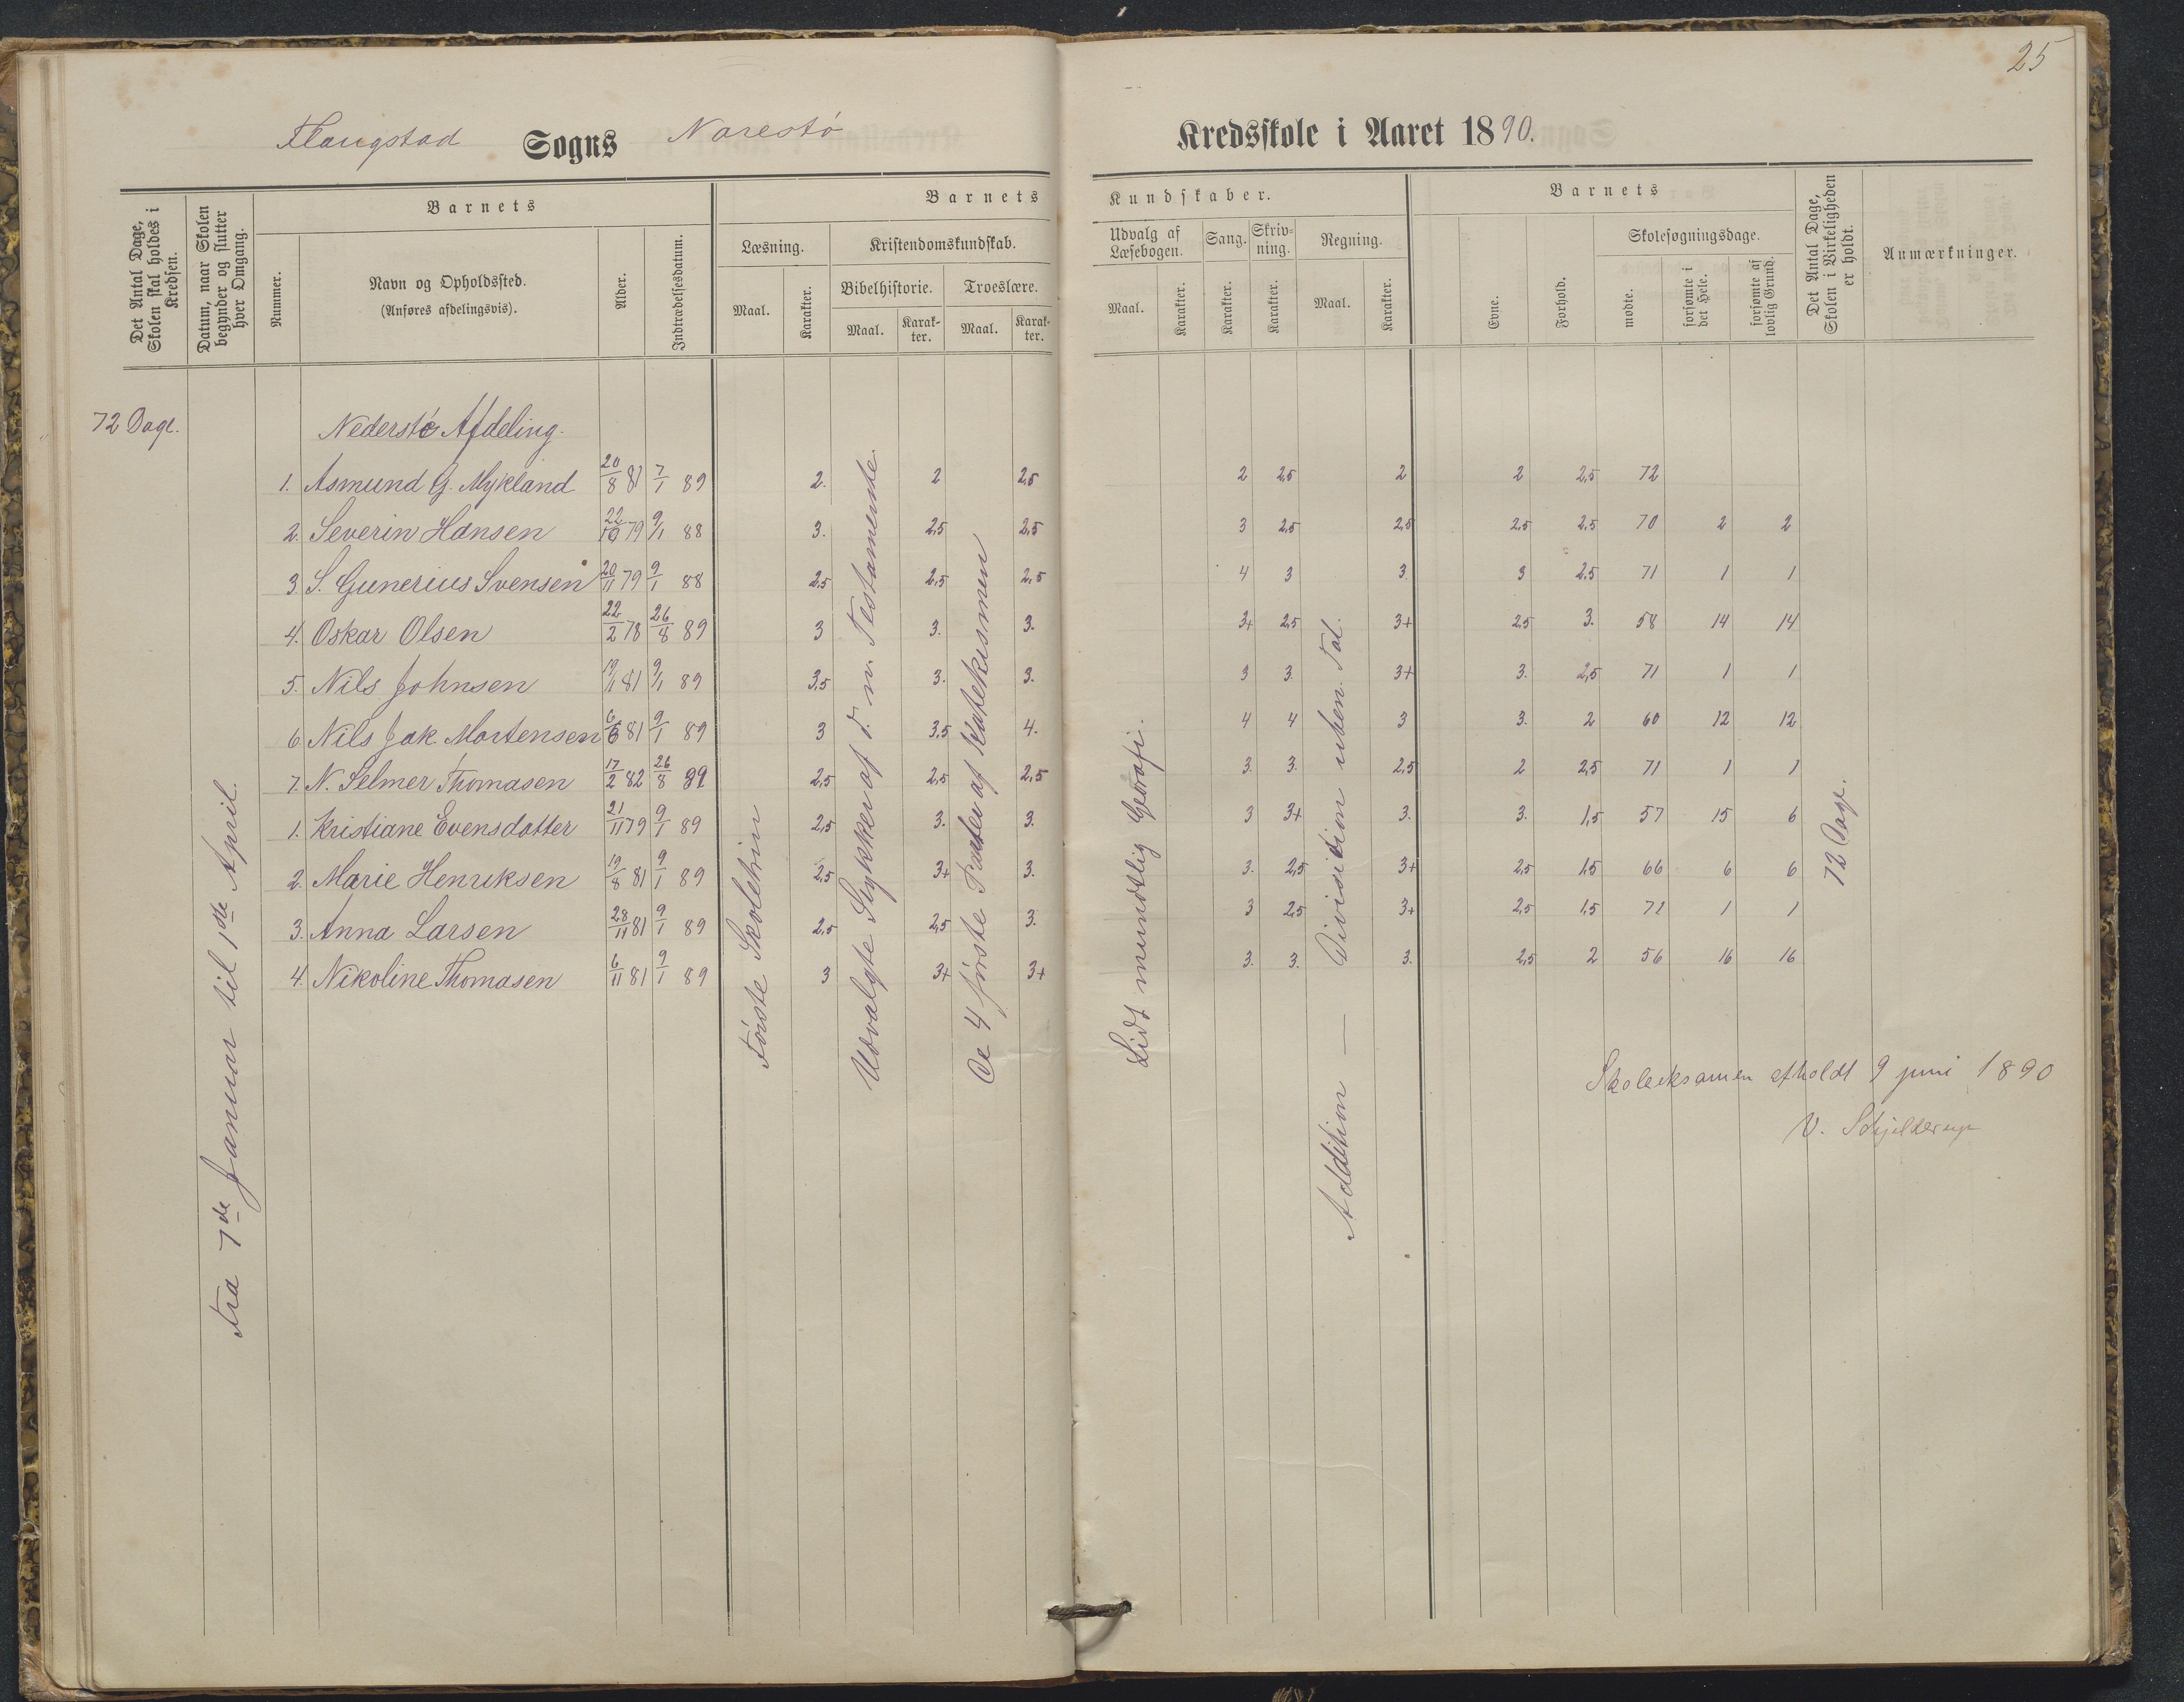 25
Flangstad Sogns Narestö Kredsskole i Aaret 1890.
Det Antal Dage, Skolen skal holdes i Kredsen.
Datum, naar Skolen begynder og slutter hver Omgang.
Barnets
Nummer.
Navn og Opholdssted.
(Anføres afdelingsvis).
Alder.
Indtrædelsesdatum.
Barnets Kundskaber.
Læsning.
Maal.
Karakter.
Kristendomskundskab.
Bibelhistorie.
Maal.
Karakter.
Troeslære.
Maal.
Karakter.
Udvalg af Læsebogen.
Maal.
Karakter.
Sang.
Karakter.
Skrivning.
Karakter.
Regning.
Maal.
Karakter.
Barnets
Evne.
Forhold.
Skolesøgningsdage.
mødte.
forsømte i det Hele.
forsømte af lovlig Grund.
Det Antal Dage, Skolen i Virkeligheden er holdt.
Anmærkninger.
72 Dage.
Fra 7de Januar til 1ste April.
Nederste Afdeling.
1. Asmund G. Mykland 20/8 81 7/1 89 2. 2 2,5 2 2,5 2 2 2,5 72
2. Severin Hansen 22/10 79 9/1 88 3. 2,5 2,5 3 2,5 2,5 2,5 2,5 70 2 2
3. S. Gunerius Svensen 20/11 79 9/1 88 2,5 2,5 2,5 4 3 3. 3 2,5 71 1 1
4. Oskar Olsen 22/2 78 26/8 89 3 3. 3. 3+ 2,5 3+ 2,5 3. 58 14 14
5. Nils Johnsen 19/11 81 9/1 89 3,5 3. 3. 3 3. 3+ 3. 2,5 71 1 1
6. Nils Jak. Mortensen 6/6 81 9/1 89 3 3,5 4. 4 4 3 3. 2 60 12 12
7. N. Selmer Thomasen 17/2 82 26/8 89 2,5 2,5 2,5 3. 3. 2,5 2 2,5 71 1 1
1. Kristiane Evensdatter 21/11 79 9/1 89 2,5 3. 3. 3 3+ 3. 3. 1,5 57 15 6
2. Marie Henriksen 19/8 81 9/1 89 2,5 3+ 3. 3. 2,5 3+ 2,5 1,5 66 6 6
3. Anna Larsen 28/11 81 9/1 89 2,5 2,5 3. 3 2,5 3+ 2,5 1,5 71 1 1
4. Nikoline Thomasen 6/11 81 9/1 89 3 3+ 3+ 3. 3. 3. 2,5 2 56 16 16
Første Skoletrin
Udvalgte Stykker af d. n. Testamente.
De 4 første Parter af Katekismen
Lidt mundtlig Geografi.
Addition — Divisition uben. Tal.
72 Dage.
Skoleeksamen afholdt 9 juni 1890
V. Schjelderup